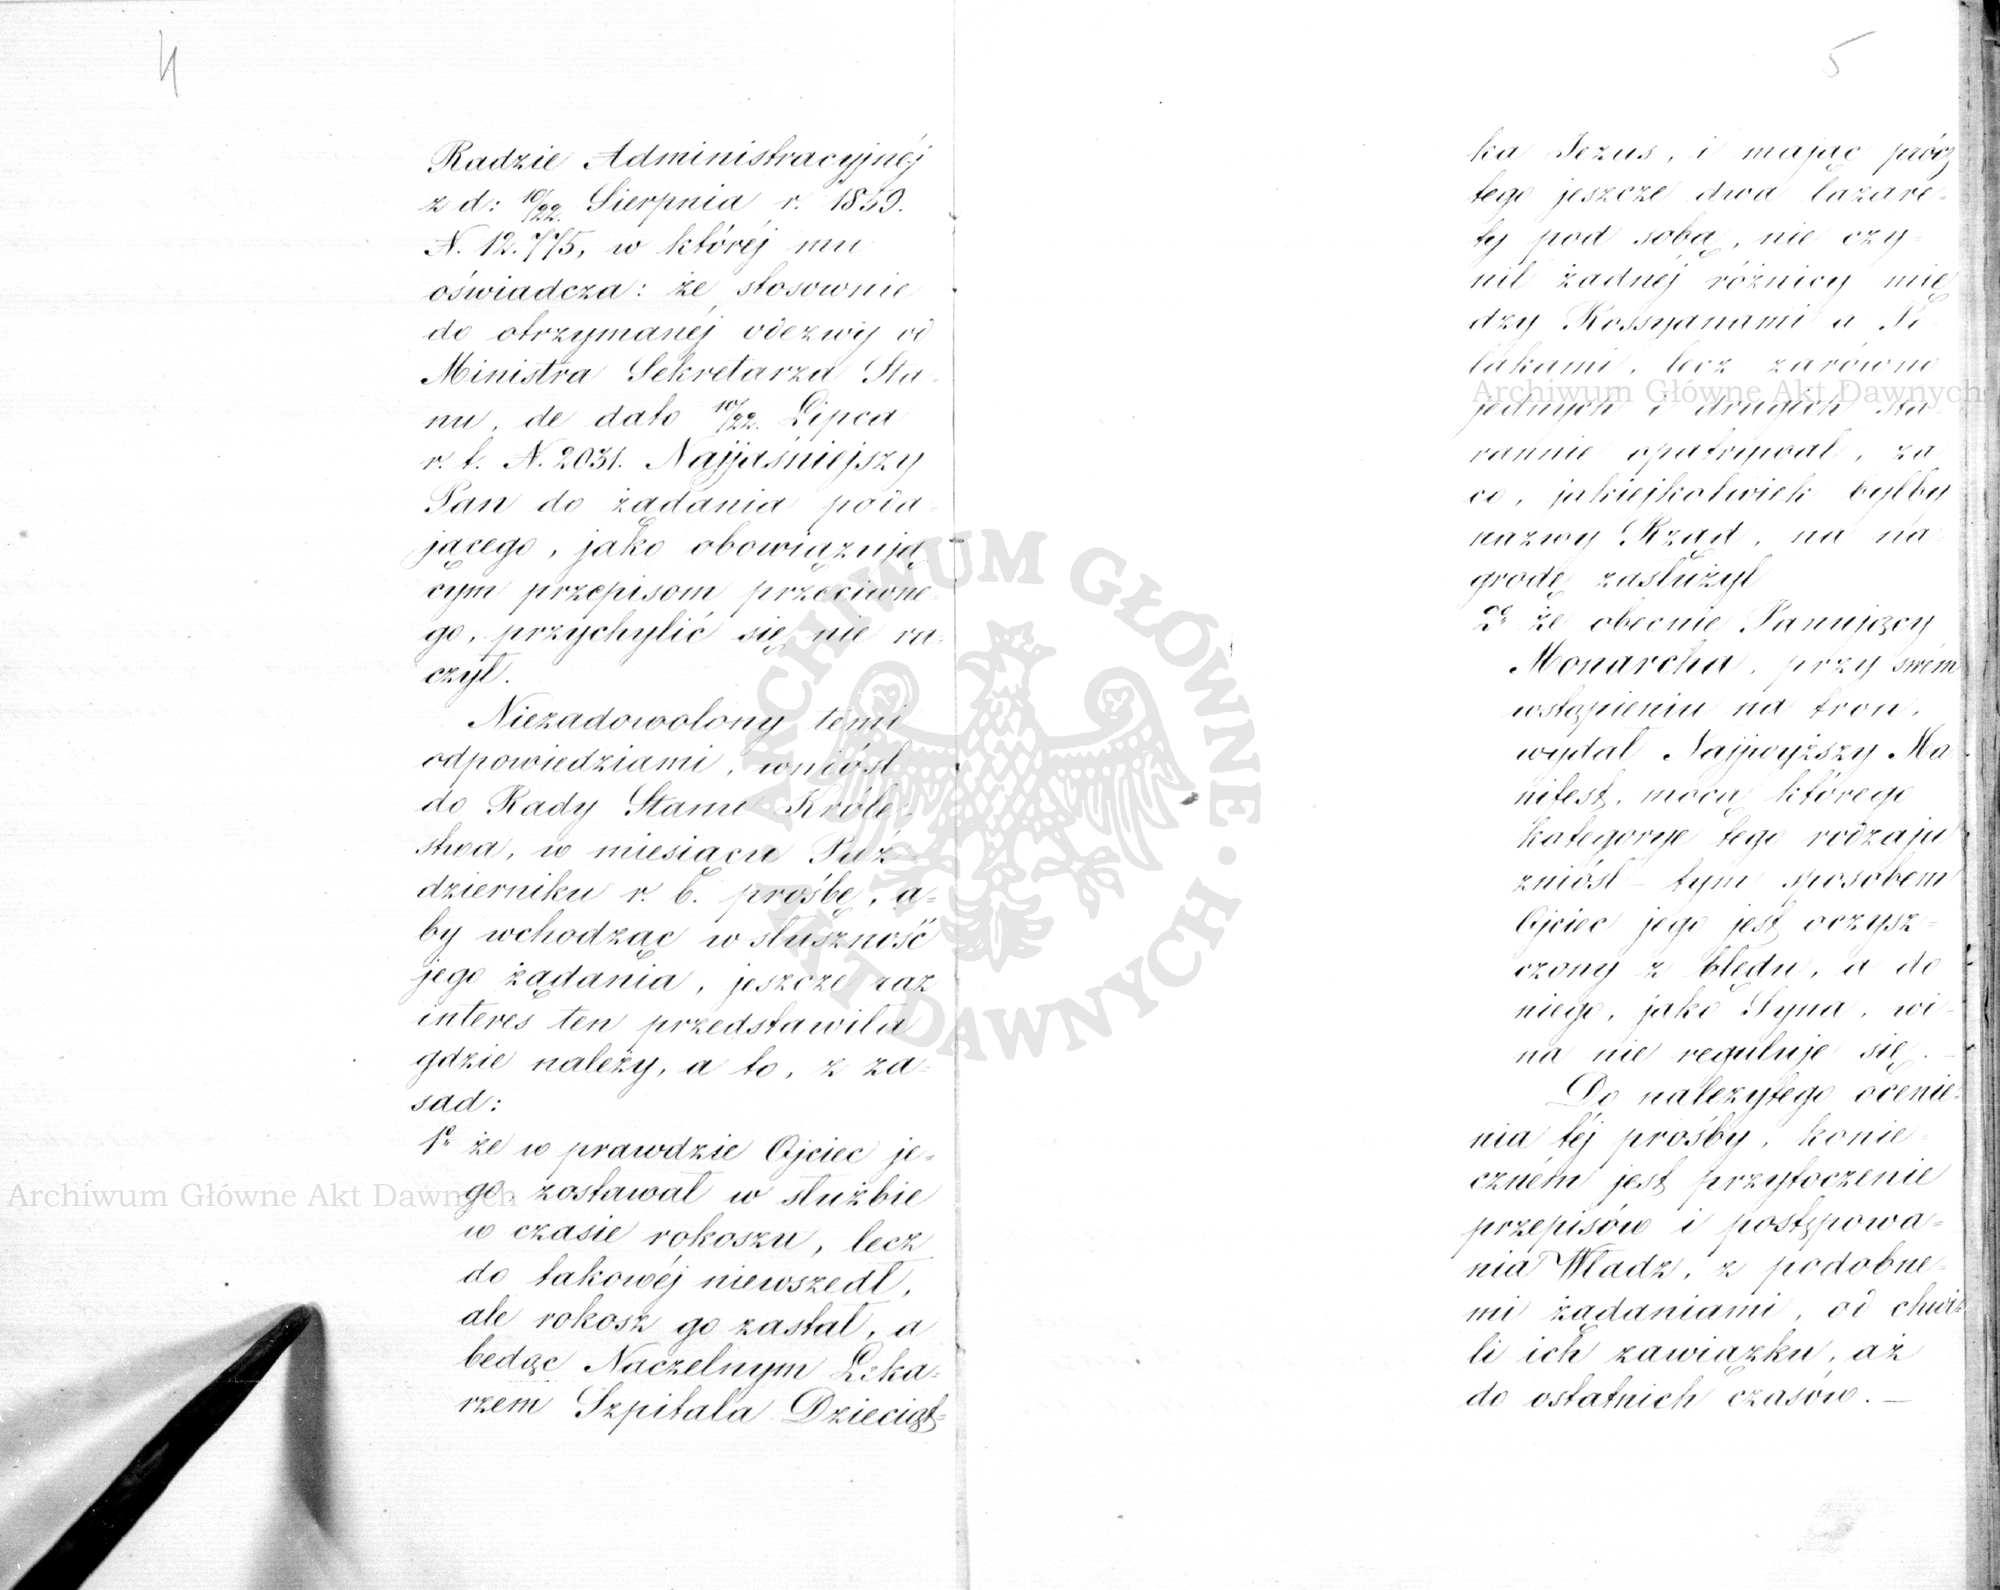 4
Radzie Administracyjnéj
z d: 10/22. Sierpnia r. 1859.
N. 12.775, w któréj mu
oświadcza: że stosownie
do otrzymanéj odezwy od
Ministra Sekretarza Sta-
nu, de dato 10/22. Lipca
r. t. N. 2031. Najjaśniejszy
Pan do żądania poda-
jącego, jako obowiązują
cym przepisom przeciwne-
go, przychylić się nie ra-
czył.
Niezadowolony temi
odpowiedziami, wniósł
do Rady Stanu Króle-
stwa, w miesiącu Paź-
dzierniku r. b. prośbę, a-
by wchodząc w słuszność
jego żądania, jeszcze raz
interes ten przedstawiła
gdzie należy, a to, z za-
sad:
1e że w prawdzie Ojciec je-
go, zostawał w służbie
w czasie rokoszu, lecz
do takowéj niewszedł,
ale rokosz go zastał, a
będąc Naczelnym Leka-
rzem Szpitala Dzieciąt-
5
ka Jezus, i mając prócz
tego jeszcze dwa lazare-
ty pod sobą, nie czy-
nił żadnéj różnicy mię
dzy Rossyanami a Po
lakami, lecz zarówno
jednych i drugich sta-
rannie opatrywał, za
co, jakiejkolwiek byłby
nazwy Rząd, na na-
grodę zasłużył
2e że obecnie Panujący
Monarcha, przy swém
wstąpieniu na tron,
wydał Najwyższy Ma
nifest, mocą którego
kategorye tego rodzaju
zniósł - tym sposobem
Ojciec jego jest oczysz-
czony z błędu, a do
niego, jako Syna, wi-
na nie reguluje się. -
Do należytego ocenie-
nia téj prośby, konie-
czném jest przytoczenie
przepisów i postępowa-
nia Władz, z podobne-
mi żądaniami, od chwi-
li ich zawiązku, aż
do ostatnich czasów. -
Archiwum Główne Akt Dawnych
Archiwum Główne Akt Dawnych
ARCHIWUM GŁÓWNE · AKT DAWNYCH ·